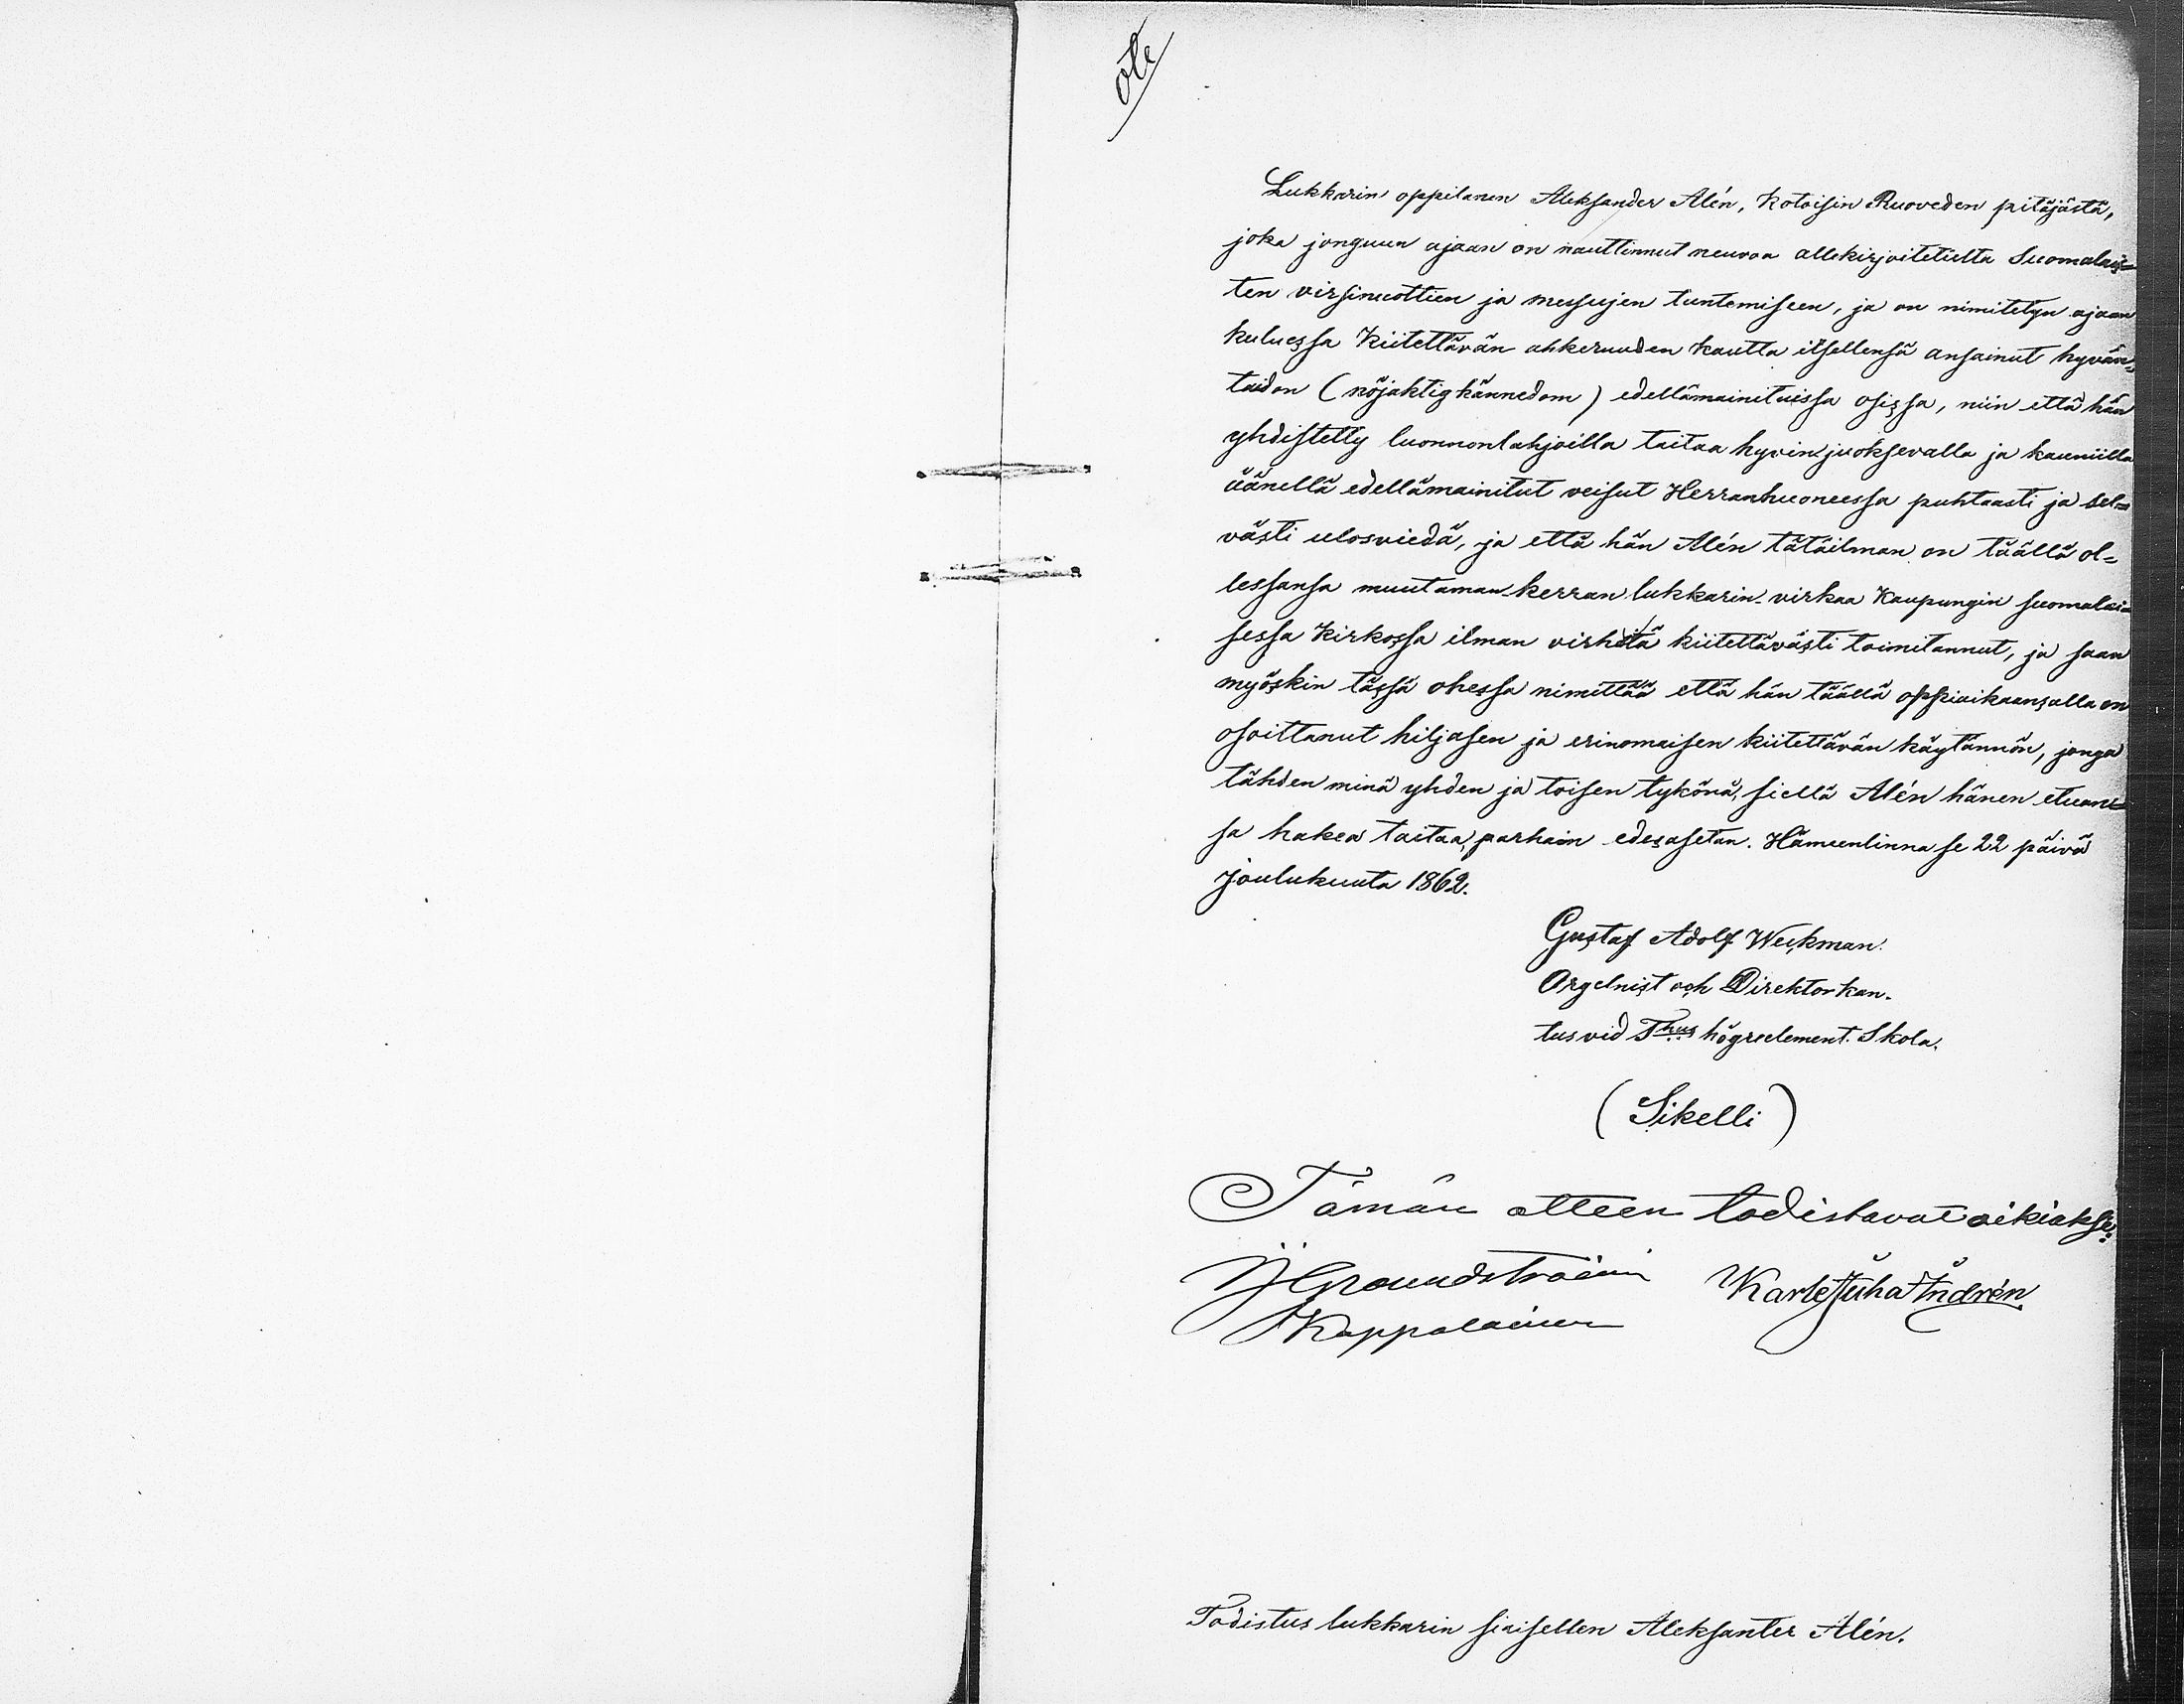 Ote
Lukkarin oppilanen Aleksander Alén, kotoisin Ruoveden pitäjästä,
joka jonguun ajaan on nauttinnut neuvoa allekirjoitetulta Suomalais=
ten virsinuottien ja messujen tuntemiseen, ja on nimitetyn ajaan
kuluessa kiitettävän ahkeruuden kautta itsellensä ansainut hyvän,
taidon (nöjaktig kännedom) edellämainituissa osissa, niin että hän
yhdistetty luonnonlahjoilla taitaa hyvin juoksevalla ja kauniilla
äänellä edellämainitut veisut Herranhuoneessa puhtaasti ja sel=
västi ulosviedä, ja että hän Alén tätäilman on täällä ol=
lessansa muutaman kerran lukkarin-virkaa Kaupungin suomalai=
sessa Kirkossa ilman virhitä kiitettävästi toimitannut, ja saan
myöskin tässä ohessa nimittää että hän täällä oppiaikaansalla on
osoittanut hiljasen ja erinomaisen kiitettävän käytännön, jonga
tähden minä yhden ja toisen tykönä, siellä Alén hänen etuan=
sa hakea taitaa, parhain edesasetan. Hämeenlinna se 22 päivä
joulukuuta 1862.
Gustaf Adolf Weckman.
Orgelnist och Direktor kan-
tus vid Thus högreelement. Skola.
(Sikelli)
Tämän otteen todistavat oikiaksi:
J Groundstroém Karle Juha Andrén
Kappalainen
Todistus lukkarin siaisellen Aleksanter Alén.